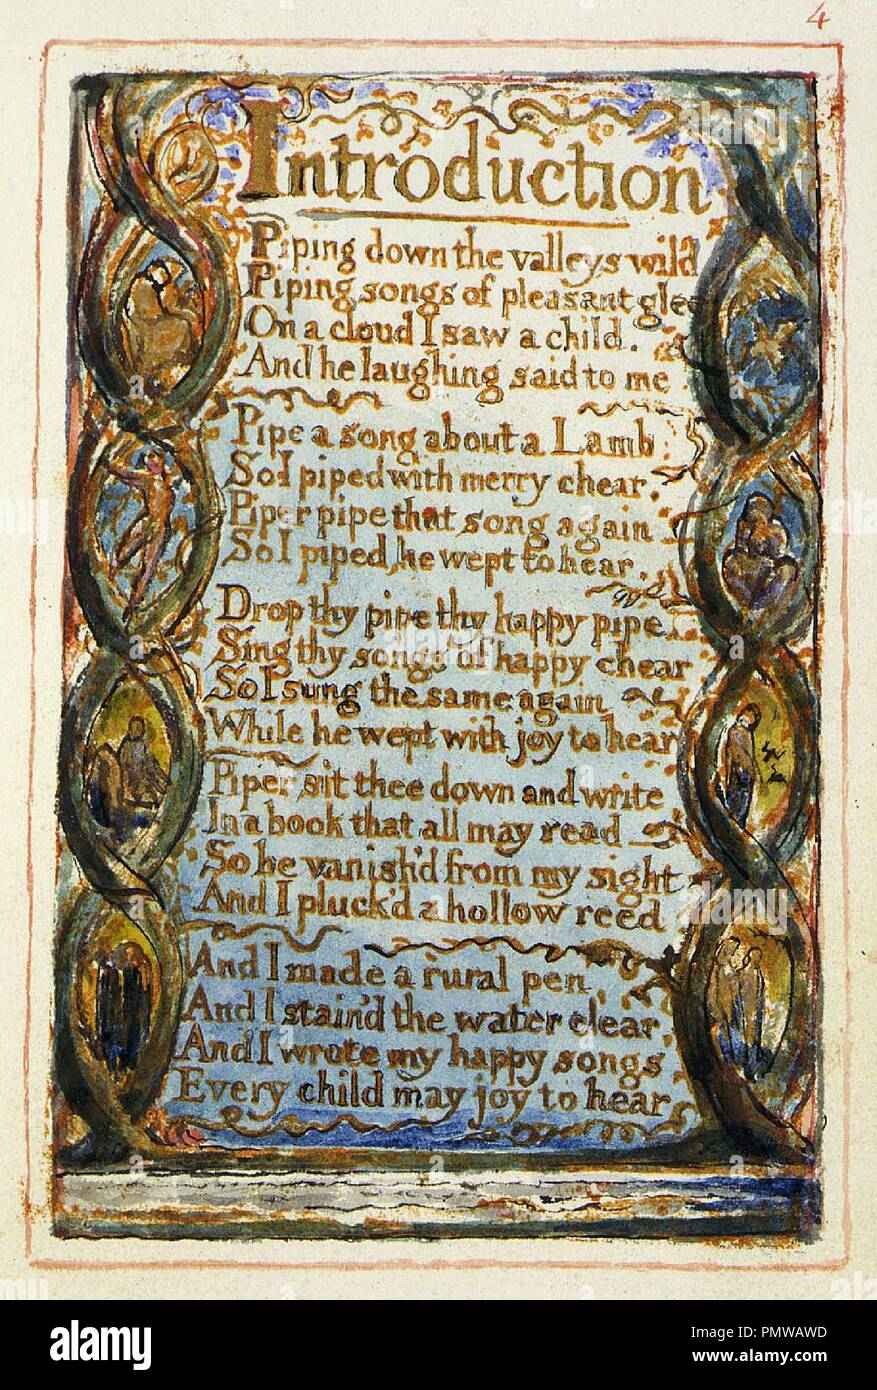 4
Introduction
Piping down the valleys wild
Piping songs of pleasant glee
On a cloud I saw a child.
And he laughing said to me
Pipe a song about a Lamb
So I piped with merry chear,
Piper pipe that song again
So I piped, he wept to hear.
Drop thy pipe thy happy pipe
Sing thy songs of happy chear
So I sung the same again
While he wept with joy to hear
Piper sit thee down and write
In a book that all may read
So he vanish'd from my sight
And I pluck'd a hollow reed
And I made a rural pen
And I stain'd the water clear,
And I wrote my happy songs
Every child may joy to hear
a
alamy
alamy
Image ID: PMWAWD
www.alamy.com